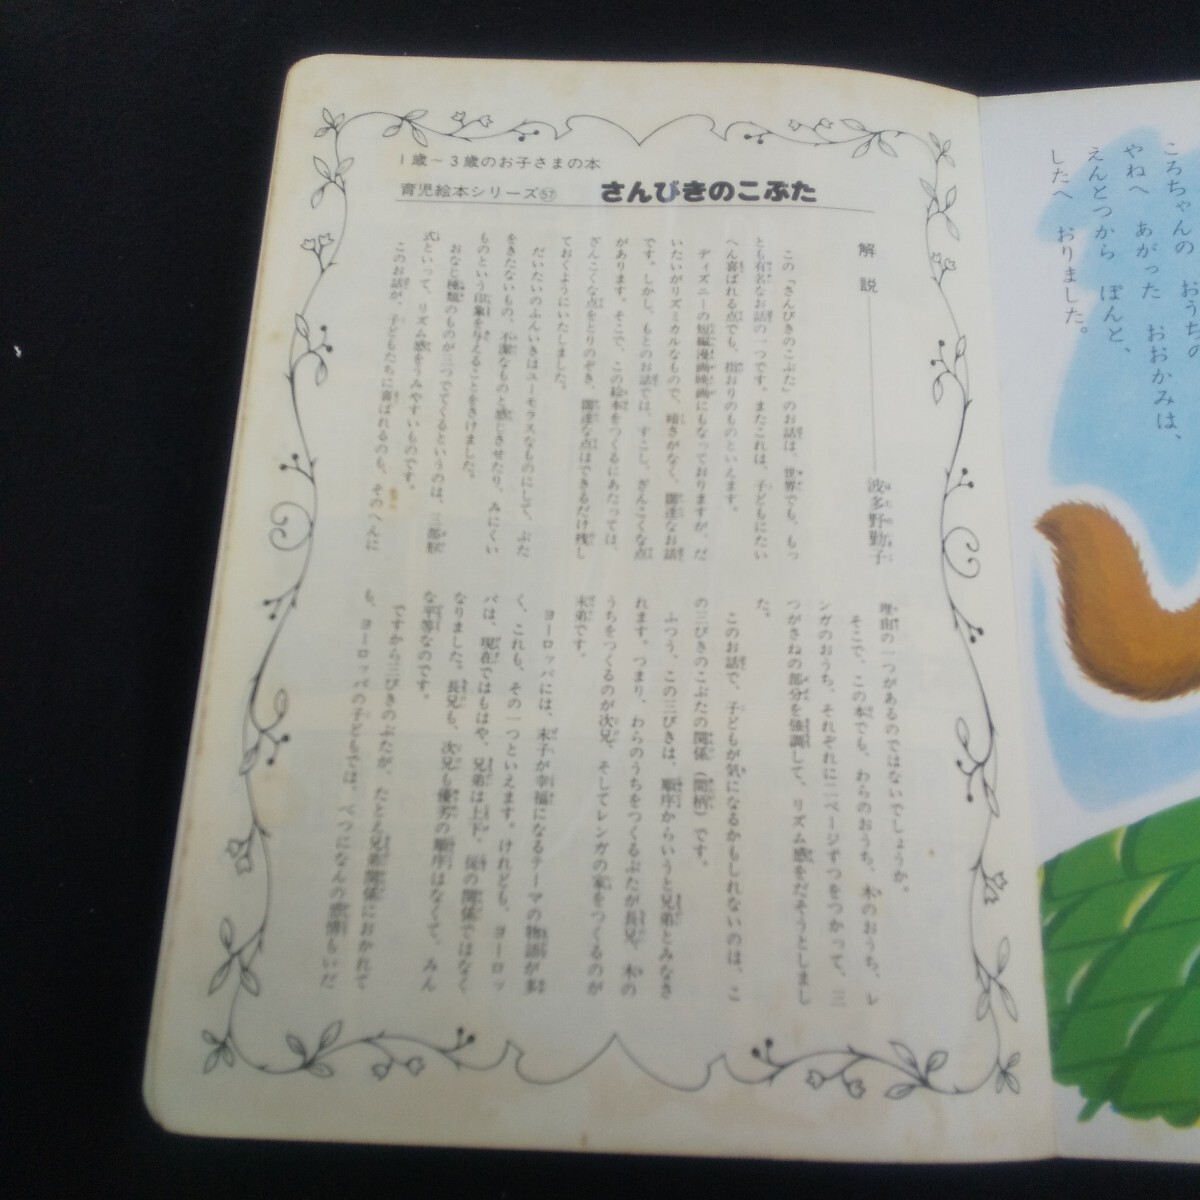 1歳〜3歳のお子さまの本
育児絵本シリーズ57 さんびきのこぶた
解説――波多野勤子
この「さんびきのこぶた」のお話は、世界でも、もっ
とも有名なお話の一つです。またこれは、子どもにたい
へん喜ばれる点でも、指おりのものといえます。
ディズニーの短編漫画映画にもなっておりますが、だ
いたいがリズミカルなもので、暗さがなく、闊達なお話
です。しかし、もとのお話では、すこし、ざんこくな点
があります。そこで、この絵本をつくるにあたっては、
ざんこくな点をとりのぞき、闊達な点はできるだけ残し
ておくようにいたしました。
だいたいのふんいきはユーモラスなものにして、ぶた
をきたないもの、不潔なものと感じさせたり、みにくい
ものという印象を与えることをさけました。
おなじ種類のものが三つでてくるというのは、三部形
式といって、リズム感をうみやすいものです。
このお話が、子どもたちに喜ばれるのも、そのへんに
理由の一つがあるのではないでしょうか。
そこで、この本でも、わらのおうち、木のおうち、レ
ンガのおうち、それぞれに二ページずつをつかって、三
つがさねの部分を強調して、リズム感をだそうとしまし
た。
このお話で、子どもが気になるかもしれないのは、こ
の三びきのこぶたの関係(間柄)です。
ふつう、この三びきは、順序からいうと兄弟とみなさ
れます。つまり、わらのうちをつくるぶたが長兄、木の
うちをつくるのが次兄、そしてレンガの家をつくるのが
末弟です。
ヨーロッパには、末子が幸福になるテーマの物語が多
く、これも、その一つといえます。けれども、ヨーロッ
パは、現在ではもはや、兄弟は上下、縦の関係ではなく
なりました。長兄も、次兄も優劣の順序はなくて、みん
な平等なのです。
ですから三びきのぶたが、たとえ兄弟関係におかれて
も、ヨーロッパの子どもでは、べつになんの感情もいだ
ころちゃんの おうちの
やねへ あがった おおかみは、
えんとつから ぽんと、
したへ おりました。